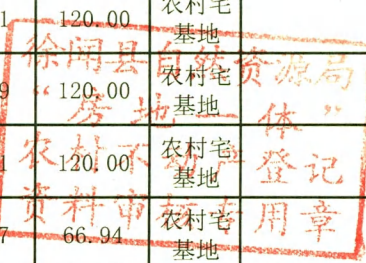 1 120.00 农村宅
基地
9 120.00 农村宅
基地
1 120.00 农村宅
基地
7 66.94 农村宅
基地
徐闻县自然资源局
“房地一体”
农村不动产登记
资料审核专用章